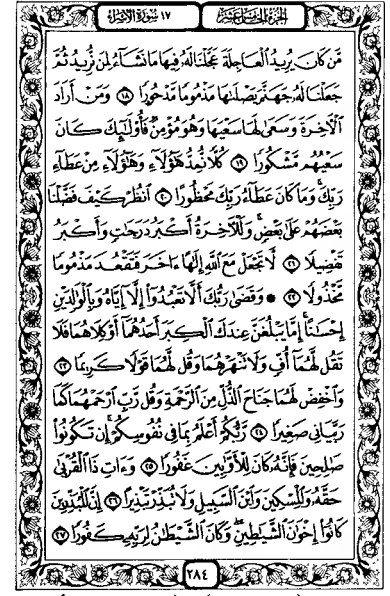 ١٧ سورة الإسراء
الجزء الخامس عشر
مَّن كَانَ يُرِيدُ ٱلْعَاجِلَةَ عَجَّلْنَا لَهُۥ فِيهَا مَا نَشَآءُ لِمَن نُّرِيدُ ثُمَّ
جَعَلْنَا لَهُۥ جَهَنَّمَ يَصْلَىٰهَا مَذْمُومًا مَّدْحُورًا ١٨ وَمَنْ أَرَادَ
ٱلْءَاخِرَةَ وَسَعَىٰ لَهَا سَعْيَهَا وَهُوَ مُؤْمِنٌ فَأُو۟لَٰٓئِكَ كَانَ
سَعْيُهُم مَّشْكُورًا ١٩ كُلًّا نُّمِدُّ هَٰٓؤُلَآءِ وَهَٰٓؤُلَآءِ مِنْ عَطَآءِ
رَبِّكَ ۚ وَمَا كَانَ عَطَآءُ رَبِّكَ مَحْظُورًا ٢٠ ٱنظُرْ كَيْفَ فَضَّلْنَا
بَعْضَهُمْ عَلَىٰ بَعْضٍ ۚ وَلَلْءَاخِرَةُ أَكْبَرُ دَرَجَٰتٍ وَأَكْبَرُ
تَفْضِيلًا ٢١ لَّا تَجْعَلْ مَعَ ٱللَّهِ إِلَٰهًا ءَاخَرَ فَتَقْعُدَ مَذْمُومًا
مَّخْذُولًا ٢٢ ۞ وَقَضَىٰ رَبُّكَ أَلَّا تَعْبُدُوٓا۟ إِلَّآ إِيَّاهُ وَبِٱلْوَٰلِدَيْنِ
إِحْسَٰنًا ۚ إِمَّا يَبْلُغَنَّ عِندَكَ ٱلْكِبَرَ أَحَدُهُمَآ أَوْ كِلَاهُمَا فَلَا
تَقُل لَّهُمَآ أُفٍّ وَلَا تَنْهَرْهُمَا وَقُل لَّهُمَا قَوْلًا كَرِيمًا ٢٣
وَٱخْفِضْ لَهُمَا جَنَاحَ ٱلذُّلِّ مِنَ ٱلرَّحْمَةِ وَقُل رَّبِّ ٱرْحَمْهُمَا كَمَا
رَبَّيَانِى صَغِيرًا ٢٤ رَّبُّكُمْ أَعْلَمُ بِمَا فِى نُفُوسِكُمْ ۚ إِن تَكُونُوا۟
صَٰلِحِينَ فَإِنَّهُۥ كَانَ لِلْأَوَّٰبِينَ غَفُورًا ٢٥ وَءَاتِ ذَا ٱلْقُرْبَىٰ
حَقَّهُۥ وَٱلْمِسْكِينَ وَٱبْنَ ٱلسَّبِيلِ وَلَا تُبَذِّرْ تَبْذِيرًا ٢٦ إِنَّ ٱلْمُبَذِّرِينَ
كَانُوٓا۟ إِخْوَٰنَ ٱلشَّيَٰطِينِ ۖ وَكَانَ ٱلشَّيْطَٰنُ لِرَبِّهِۦ كَفُورًا ٢٧
٢٨٤